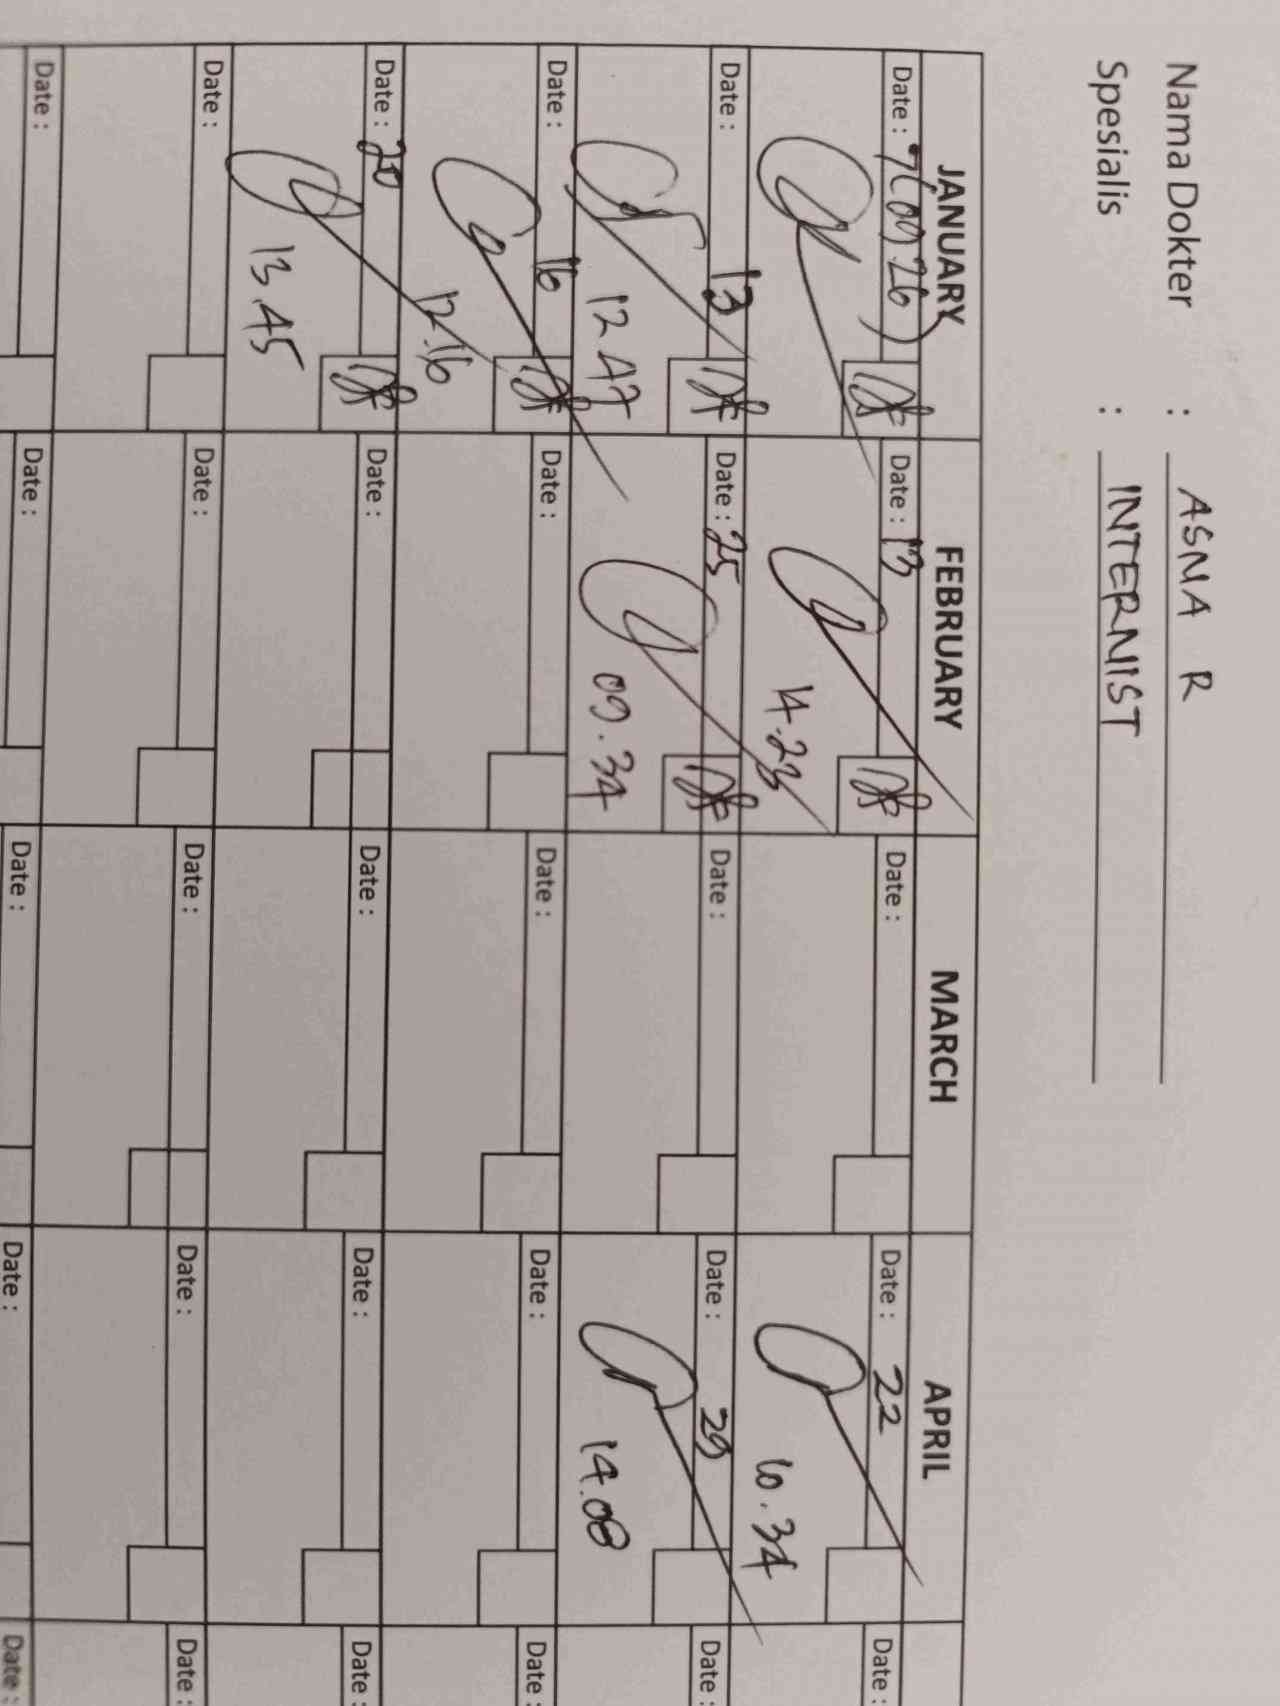 Nama Dokter : ASMA R
Spesialis : INTERNIST
JANUARY FEBRUARY MARCH APRIL
Date : 7 (09.26) Date : 13 Date : Date : 22 Date :
14.23 10.34
Date : 13 Date : 25 Date : Date : 29 Date :
12.47 09.34 14.08
Date : 16 Date : Date : Date : Date :
12.16
Date : 20 Date : Date : Date : Date :
13.45
Date : Date : Date : Date : Date :
Date : Date : Date : Date : Date :